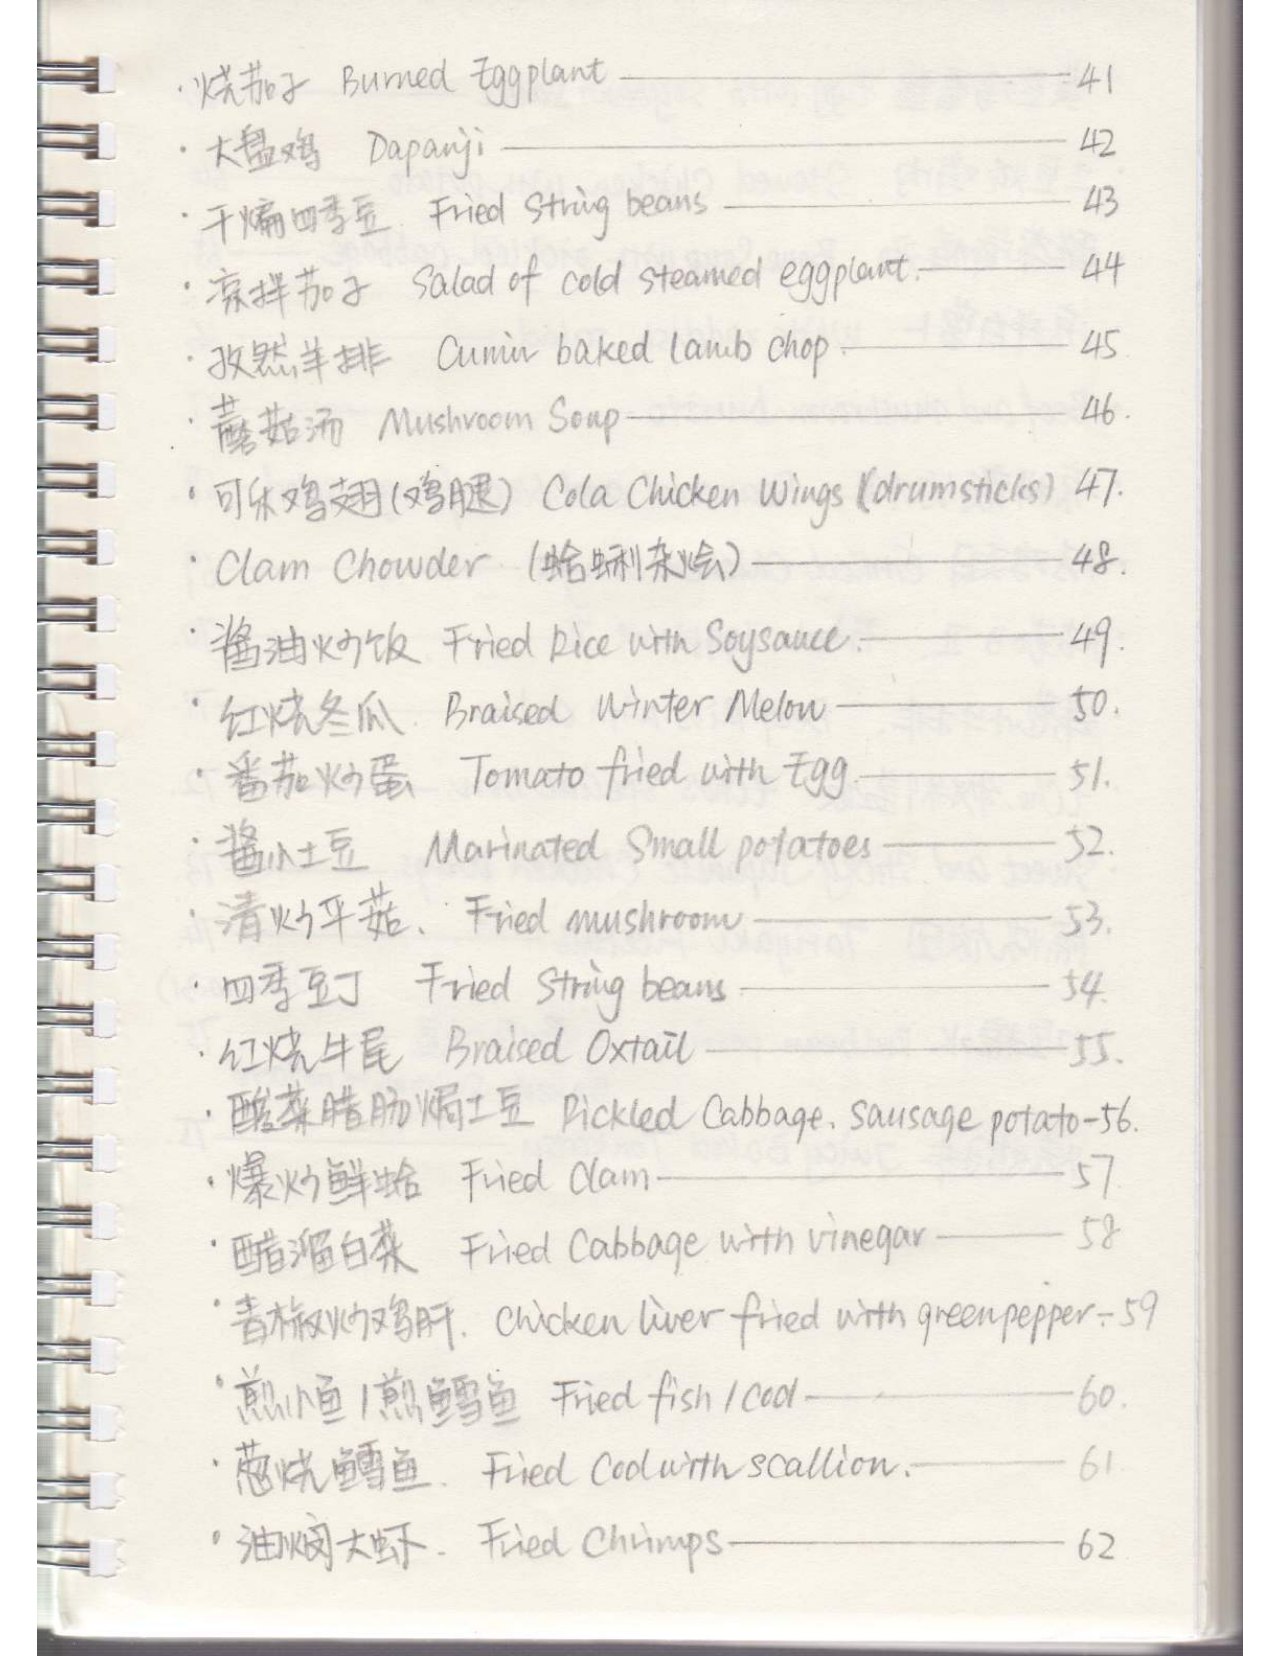 · 烧茄子 Burned Eggplant — 41
· 大盘鸡 Dapanji — 42
· 干煸四季豆 Fried String beans — 43
· 凉拌茄子 Salad of cold steamed eggplant. — 44
· 孜然羊排 Cumin baked lamb chop. — 45
· 蘑菇汤 Mushroom Soup — 46.
· 可乐鸡翅(鸡腿) Cola Chicken Wings (drumsticks) 47.
· Clam Chowder (蛤蜊杂烩) — 48.
· 酱油炒饭 Fried Rice with Soysauce. — 49.
· 红烧冬瓜 Braised Winter Melon — 50.
· 番茄炒蛋 Tomato fried with Egg. — 51.
· 酱小土豆 Marinated Small potatoes — 52.
· 清炒平菇. Fried mushroom — 53.
· 四季豆丁 Fried String beans — 54.
· 红烧牛尾 Braised Oxtail — 55.
· 酸菜腊肠焗土豆 Pickled Cabbage. Sausage potato - 56.
· 爆炒鲜蛤 Fried Clam — 57
· 醋溜白菜 Fried Cabbage with vinegar — 58
· 青椒炒鸡肝. Chicken liver fried with greenpepper - 59
· 煎小鱼 / 煎鳕鱼 Fried fish / cod — 60.
· 葱烧鳕鱼. Fried Cod with scallion. — 61.
· 油焖大虾. Fried Chrimps — 62